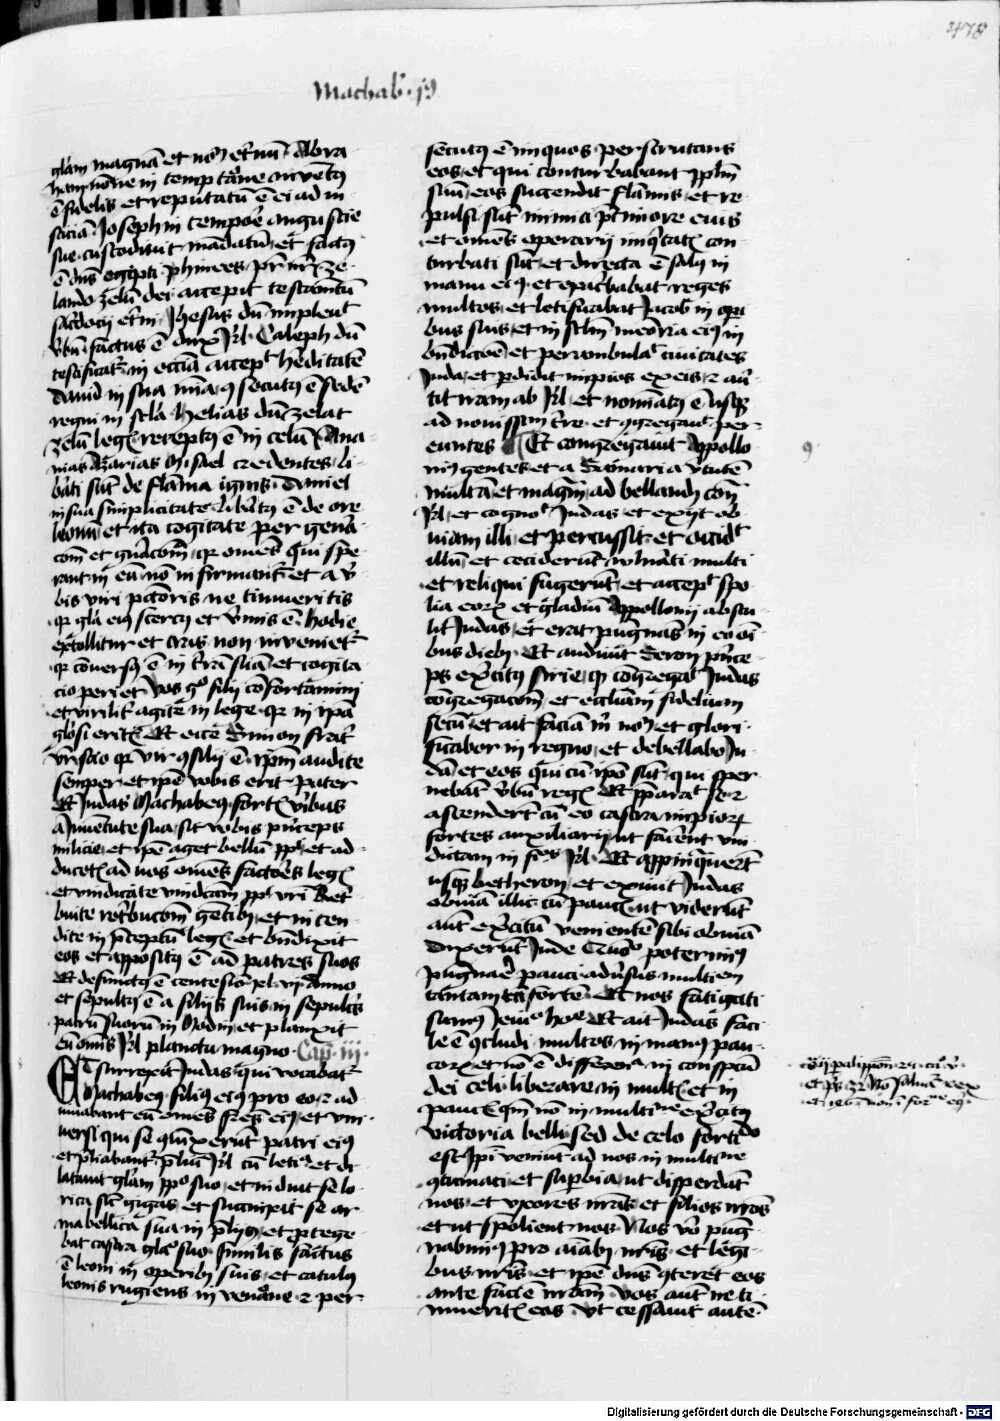 478
Machab. j9
glām magnā et nom̄ et̄nū Abra
ham nōne in temptac̄one inventꝯ
ē fidelis et reputatū ē ei ad iu
sticiā Joseph in tempore angustie
sue custodivit mādatū et factꝯ
ē dn̄s egipti phinees pr̄ nr̄ ze
lando zelū dei accepit testamētū
sac̄docij et̄ni Jhesus dū implevit
v̄bū factus ē dux Jsrl Caleph dū
testificat̄ in ecc̄ia accepit hēditatē
David in sua mīa ꝯsecutꝯ ē sedē
regni in sc̄la helias dū zelat
zelū legꝭ receptꝯ ē in celū Ana
nias Azarias Misael credentes li
bāti sūt de flāma ignis Daniel
in sua simplicitate lib̄atꝯ ē de ore
leonū et ita cogitate per genēa
com̄ et gnāc̄om̄ qꝛ omēs qui spe
rant in eū nō infirmant̄ et a v̄
bis viri pctōris ne timueritis
qꝛ glā eiꝯ stercꝯ et v̄mis ē hodie
extollitur et cras non inveniet̄
qꝛ cōversꝯ ē in t̄rā suā et cogita
cio periet vos gͦ filij cōfortamini
et virilit̄ agite in lege qꝛ in ip̄a
glōsi eritꝭ Et ecce Simon frat̄
vr̄ scio qꝛ vir ꝯsilij ē ip̄m audite
semper et ip̄e vobis erit pater
Et Judas Machabeꝯ fortꝭ v̄ibus
a Juventute sua sit vobis pn̄ceps
milicie et ip̄e aget bellū ppl̄i et ad
ducetꝭ ad vos omēs factōes legꝭ
et vindicate vindc̄am ppl̄i vr̄i Ret̄
buite ret̄buc̄om gētibꝯ et inten
dite in p̄ceptū legꝭ et bn̄dixit
eos et appositꝯ ē ad patres suos
Et defunctꝯ ē centesīo xl vj anno
et sepultꝯ ē a filijs suis in sepulc̄s
patrū suorū in Modin et planxit
eū om̄is Jsrl planctu magno Cap. iii.
Et surrexit Judas qui vocabat̄
Machabeꝯ filiꝯ eiꝯ pro eo et ad
iuvabant eū omēs fr̄es eiꝯ et vni
versi qui se ꝯiūxerūt patri eiꝯ
et p̄liabant̄ p̄liū Jsrl cū leticia et di
latavit glām pplo suo et induit se lo
rica sic̄ gigas et succinxit se ar
ma bellica sua in p̄lijs et p̄tege
bat castra gladio suo similis factus
ē leoni in operibꝯ suis et catulꝯ
leonis rugiens in venac̄one et per
secutꝯ ē iniquos perscrutans
eos et qui conturbabant pplm̄
suū eos succendit flāmis et re
pulsi sūt inimici p̄ timore eius
et omēs operarij iniq̄tatꝭ con
turbati sūt et directa ē salꝯ in
manu eiꝯ et exacerbabat reges
multos et letificabat Jacob in opi
bus suis et in sc̄lm̄ memoria eiꝯ in
bn̄dictōe et perambulavit civitates
Juda et p̄didit impios ex eis et av̄
tit iram ab Jsrl et nominatꝯ ē usqꝫ
ad novissim t̄re et ꝯgregavit per
euntes Et congregavit Appollo
niꝯ gentes et a Samaria v̄tutē
multā et magnā ad bellandū cont̄
Jsrl et cognovit Judas et exijt ob
viam illi et percussit et occidit
illū et ceciderūt vuln̄ati multi
et reliqui fugerūt et accepit spo
lia eorꝝ et gladiū Appollonij abstu
lit Judas et erat pugnās in eo oī
bus diebꝯ Et audivit Seron pn̄ce
ps exc̄itꝯ sirie qꝛ congregavit Judas
congregac̄om̄ et eccliam fidelium
secū et ait faciā mͥ nom̄ et glori
ficabor in regno et debellabo Ju
dā et eos qui cū ipō sūt qui sper
nebāt v̄bū regꝭ Et p̄paravit se et
ascenderūt cū eo castra impiorꝝ
fortes auxiliarij ut facēnt vin
dictam in filios Jsrl Et appinquavit
usqꝫ betheron et exivit Judas
obviā illi cū paucꝭ ut viderūt
autē exc̄itū venientē sibi obviā
dixerūt Jude Quō poterimꝯ
pugnare pauci adv̄sus multitudinem
tantam tā fortē Et nos fatigati
sumꝯ Jeiunio hodie Et ait Judas faci
le ē ꝯcludi multos in manꝯ pau
corꝝ et nō ē differencia in ꝯspctū
dei celi liberare in multꝭ et in
paucꝭ qm̄ nō in multitudine exc̄itꝯ
victoria belli sed de celo fortitudo
est Ipī veniūt ad nos in multitudine
ꝯtumaci et supbia ut disperdāt
nos et vxores nr̄as et filios nr̄os
et ut spolient nos Nos vō pug
nabimꝯ pro aīabꝯ nr̄is et legi
bus nr̄is et ip̄e dn̄s ꝯteret eos
ante faciē nr̄am vos aūt ne ti
mueritꝭ eos Vt cessavit autē